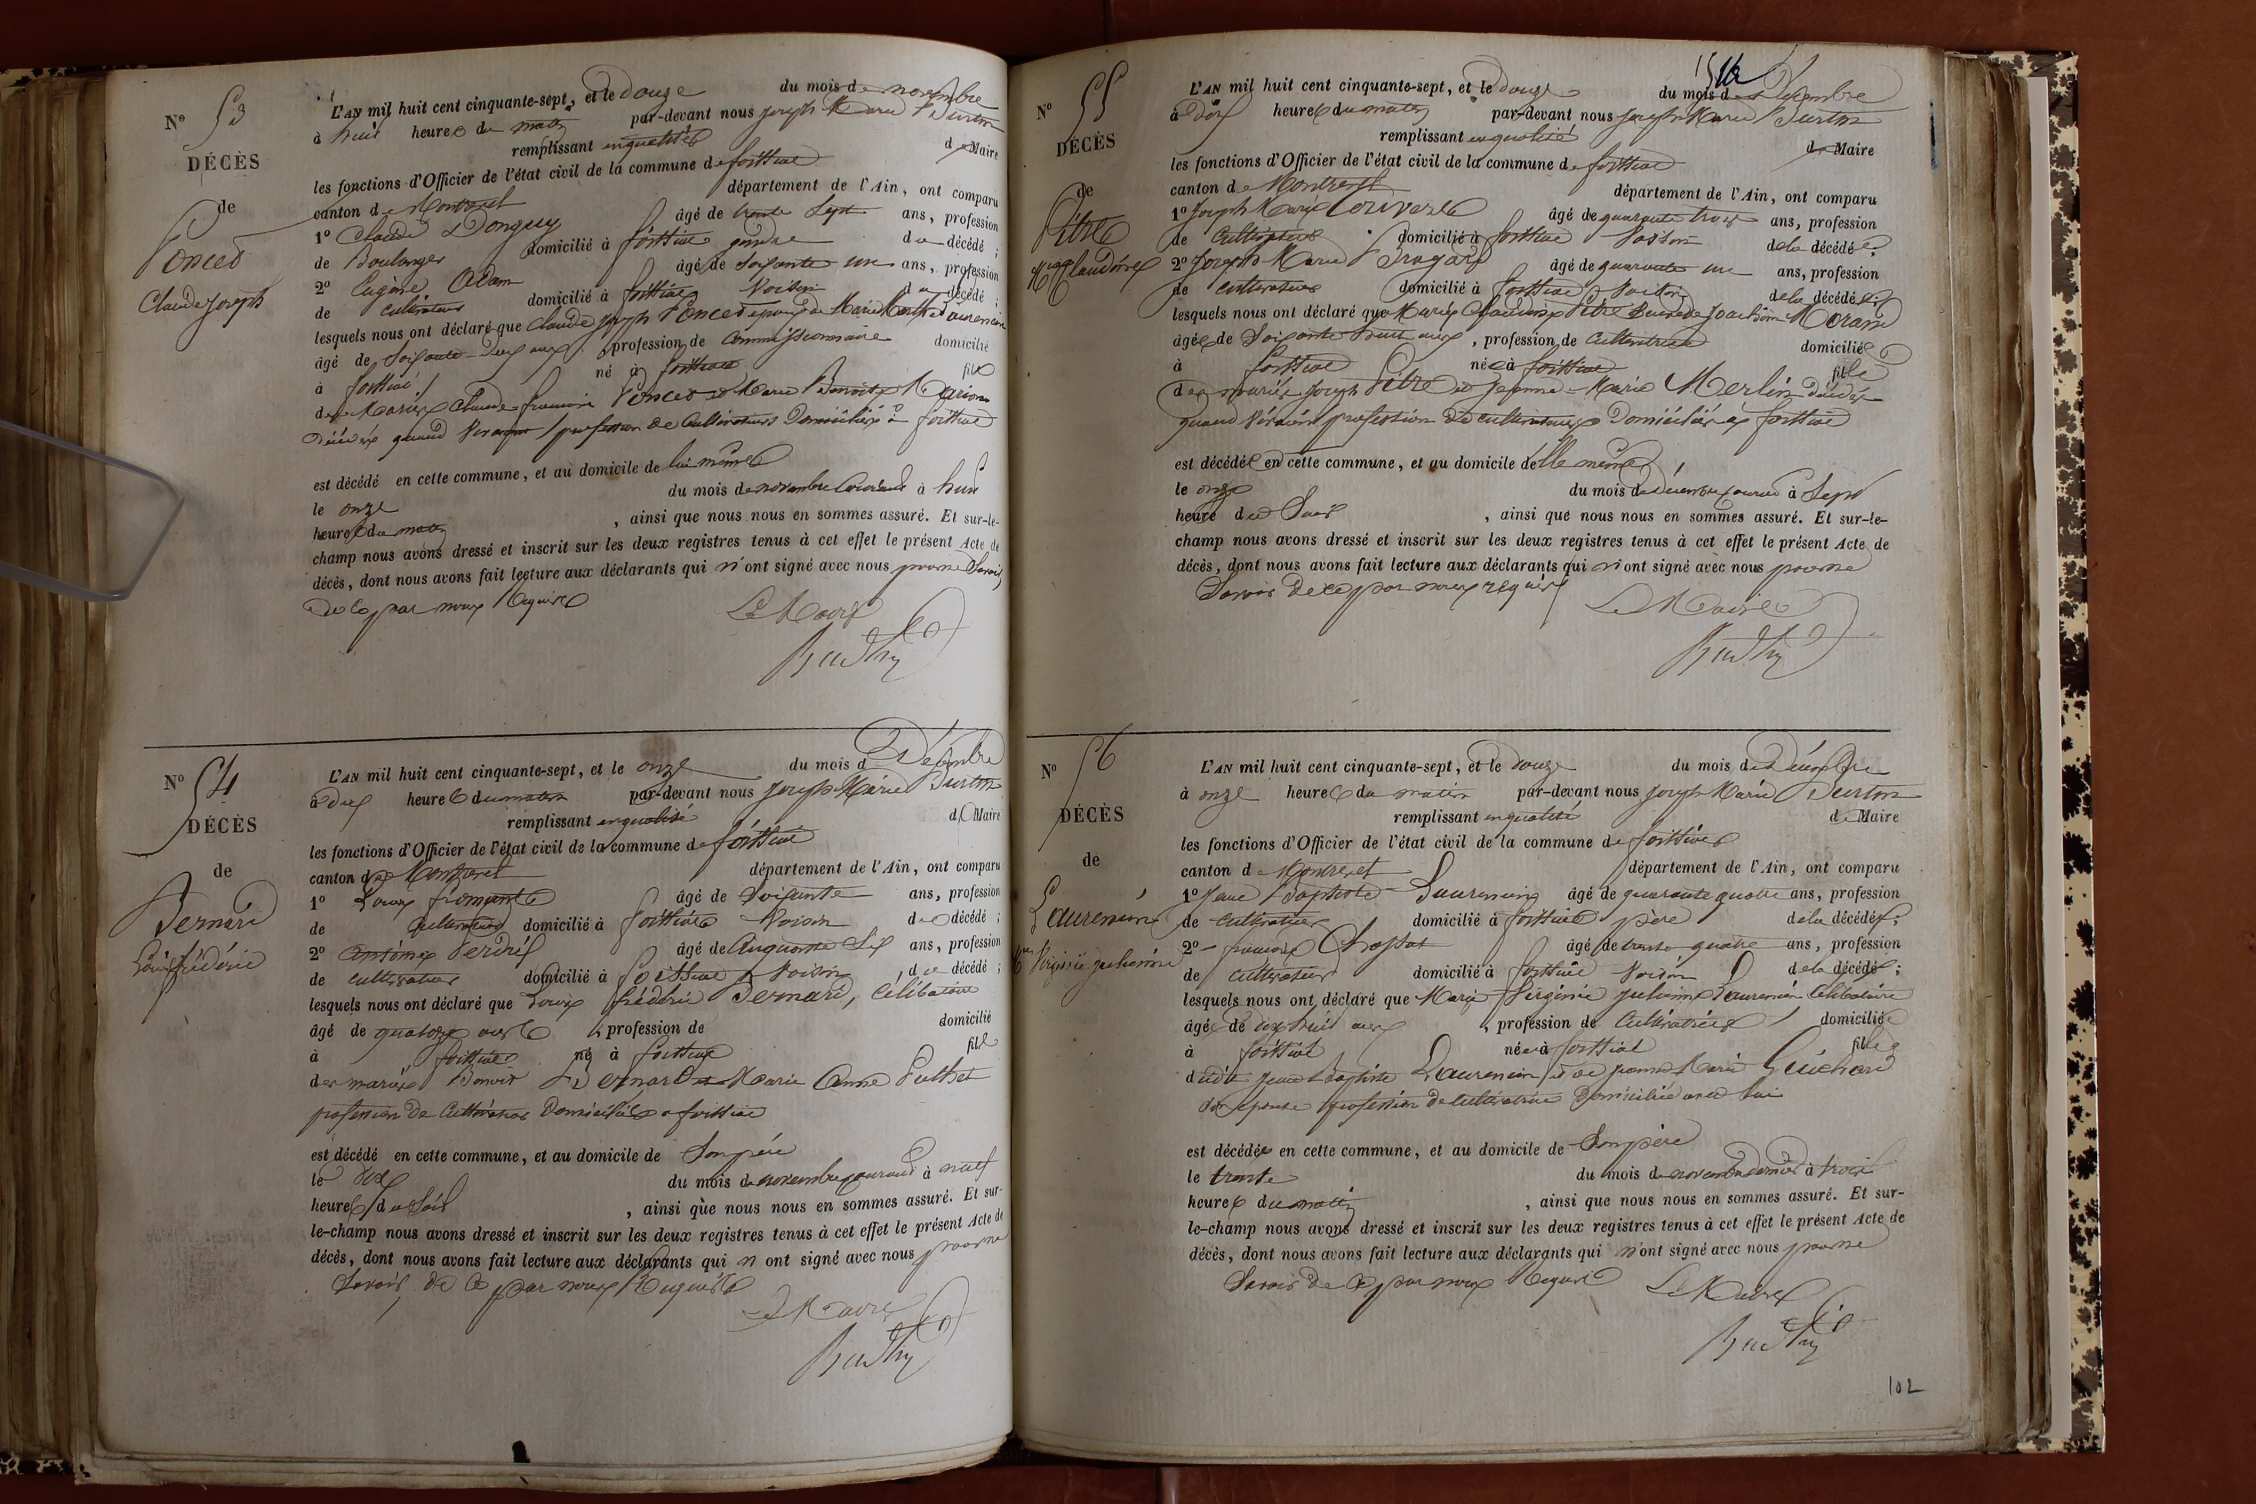 N° 53
DÉCÈS
de
Poncet
Claude Joseph
L'AN mil huit cent cinquante-sept, et le douze du mois de novembre
à huit heures du matin par-devant nous Joseph Marie Burtin
remplissant en qualité de Maire
les fonctions d'Officier de l'état civil de la commune de foissiat
canton de Montrevel département de l'Ain, ont comparu
1° Claude Donguy âgé de trente sept ans, profession
de Boulanger domicilié à foissiat gendre du décédé ;
2° Eugène Adam âgé de soixante un ans, profession
de cultivateur domicilié à foissiat Voisin du décédé ;
lesquels nous ont déclaré que Claude Joseph Poncet époux de Marie Laurencin
âgé de soixante-deux ans, profession de Commissionnaire domicilié
à foissiat né à foissiat fils
des Mariés Claude francois Poncet et Marie Benoite Marion
Décédés quand vivaient profession de Cultivateurs Domiciliés à foissiat
est décédé en cette commune, et au domicile de lui même
le onze du mois de novembre Courant à huit
heures du matin, ainsi que nous nous en sommes assuré. Et sur-le-
champ nous avons dressé et inscrit sur les deux registres tenus à cet effet le présent Acte de
décès, dont nous avons fait lecture aux déclarants qui n'ont signé avec nous pour ne Savoir
de ce par nous Requis
Le Maire
N° 54
DÉCÈS
de
Bernard
Louis frédéric
L'AN mil huit cent cinquante-sept, et le onze du mois de Décembre
à dix heures du matin par-devant nous Joseph Marie Burtin
remplissant en qualité de Maire
les fonctions d'Officier de l'état civil de la commune de foissiat
canton de Montrevel département de l'Ain, ont comparu
1° Louis froment âgé de soixante ans, profession
de Cultivateur domicilié à foissiat Voisin du décédé ;
2° antoine âgé de cinquante six ans, profession
de cultivateur domicilié à foissiat Voisin du décédé ;
lesquels nous ont déclaré que Louis frédéric Bernard, Célibataire
âgé de quatorze ans, profession de domicilié
à foissiat né à foissiat fils
des mariés Benoit Bernard et Marie Anne Buthet
profession de Cultivateurs Domiciliés a foissiat
est décédé en cette commune, et au domicile de Son père
le dix du mois de novembre courant à neuf
heures du Soir, ainsi que nous nous en sommes assuré. Et sur-
le-champ nous avons dressé et inscrit sur les deux registres tenus à cet effet le présent Acte de
décès, dont nous avons fait lecture aux déclarants qui n'ont signé avec nous pour ne
Savoir de ce par nous Requis
Le Maire
N° 55
DÉCÈS
de
Pitre
Mie Claudine
L'AN mil huit cent cinquante-sept, et le douze du mois de Décembre
à dix heures du matin par-devant nous Joseph Marie Burtin
remplissant en qualité de Maire
les fonctions d'Officier de l'état civil de la commune de foissiat
canton de Montrevel département de l'Ain, ont comparu
1° Joseph Marie Couvert âgé de quarante trois ans, profession
de Cultivateur domicilié à foissiat Voisin de la décédée ;
2° Joseph Marie Brogard âgé de quarante un ans, profession
de cultivateur domicilié à foissiat Voisin de la décédée ;
lesquels nous ont déclaré que Marie Claudine Pitre Veuve de Joachim Morand
âgée de soixante huit ans, profession de Cultivatrice domiciliée
à foissiat née à foissiat fille
des mariés Joseph Pitre et Jeanne-Marie Merlin décédés
quand vivaient profession de cultivateurs Domiciliés a foissiat
est décédée en cette commune, et au domicile d'elle même
le onze du mois de décembre courant à Sept
heure du Soir, ainsi que nous nous en sommes assuré. Et sur-le-
champ nous avons dressé et inscrit sur les deux registres tenus à cet effet le présent Acte de
décès, dont nous avons fait lecture aux déclarants qui n'ont signé avec nous pour ne
Savoir de ce par nous requis
Le Maire
N° 56
DÉCÈS
de
Laurencin
Mie Virginie julienne
L'AN mil huit cent cinquante-sept, et le douze du mois de Décembre
à onze heures du matin par-devant nous Joseph Marie Burtin
remplissant en qualité de Maire
les fonctions d'Officier de l'état civil de la commune de foissiat
canton de Montrevel département de l'Ain, ont comparu
1° Jean Baptiste Laurencin âgé de quarante quatre ans, profession
de cultivateur domicilié à foissiat père de la décédée ;
2° francois Chossat âgé de trente quatre ans, profession
de cultivateur domicilié à foissiat Voisin de la décédée ;
lesquels nous ont déclaré que Marie Virginie julienne Laurencin Célibataire
âgée de dix huit ans, profession de Cultivatrice domiciliée
à foissiat née à foissiat fille
dudit Jean Baptiste Laurencin et de Jeanne Marie Guichard
son épouse profession de Cultivatrice Domiciliée avec lui
est décédée en cette commune, et au domicile de Son père
le trente du mois de novembre dernier à trois
heures du matin, ainsi que nous nous en sommes assuré. Et sur-
le-champ nous avons dressé et inscrit sur les deux registres tenus à cet effet le présent Acte de
décès, dont nous avons fait lecture aux déclarants qui n'ont signé avec nous pour ne
Savoir de ce par nous Requis
Le Maire
102